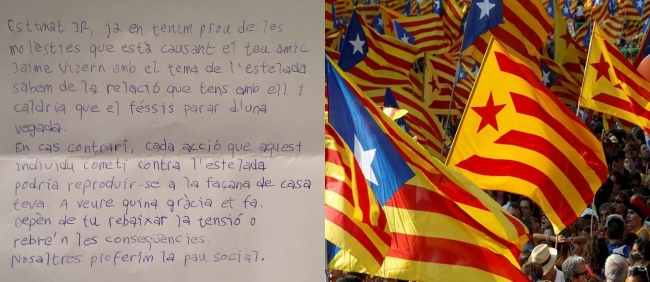 Estimat JR, ja en tenim prou de les
molèsties que està causant el teu amic
Jaime Vizern amb el tema de l'estelada
sabem de la relació que tens amb ell i
caldria que el féssis parar d'una
vegada.
En cas contrari, cada acció que aquest
individu cometi contra l'estelada
podria reproduir-se a la façana de casa
teva. A veure quina gràcia et fa.
Depèn de tu rebaixar la tensió o
rebre'n les conseqüències.
Nosaltres preferim la pau social.